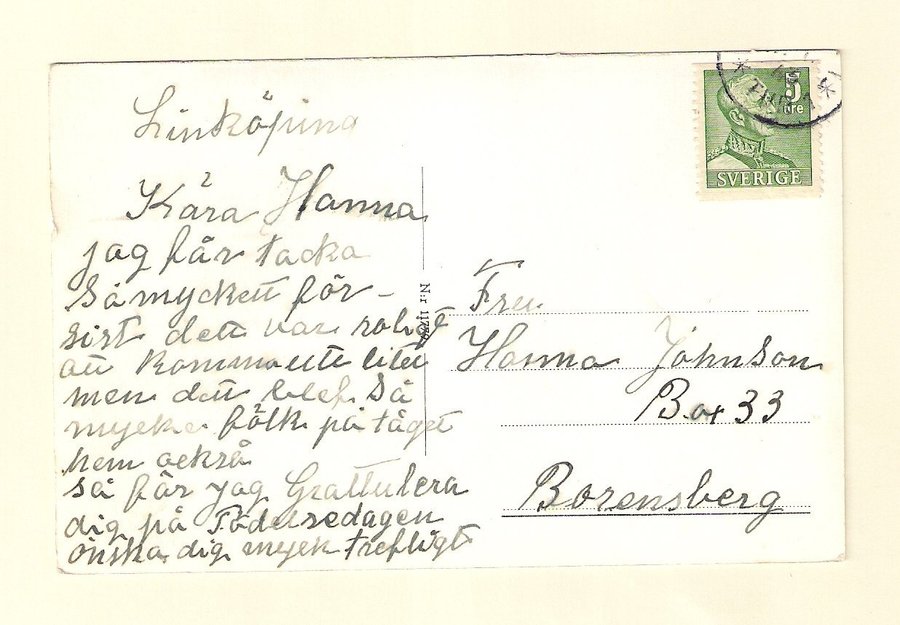 Linköping
Kära Hanna
jag får tacka
så mycket för
sist dett var roligt
att komma ute litet
men dett blef så
mycke fölk på tåget
hem också
så får jag Grattulera
dig på Födelsedagen
önska dig myck trefligt
5
öre
SVERIGE
N:r
Fru
Hanna Johnson
Box 33
Borensberg